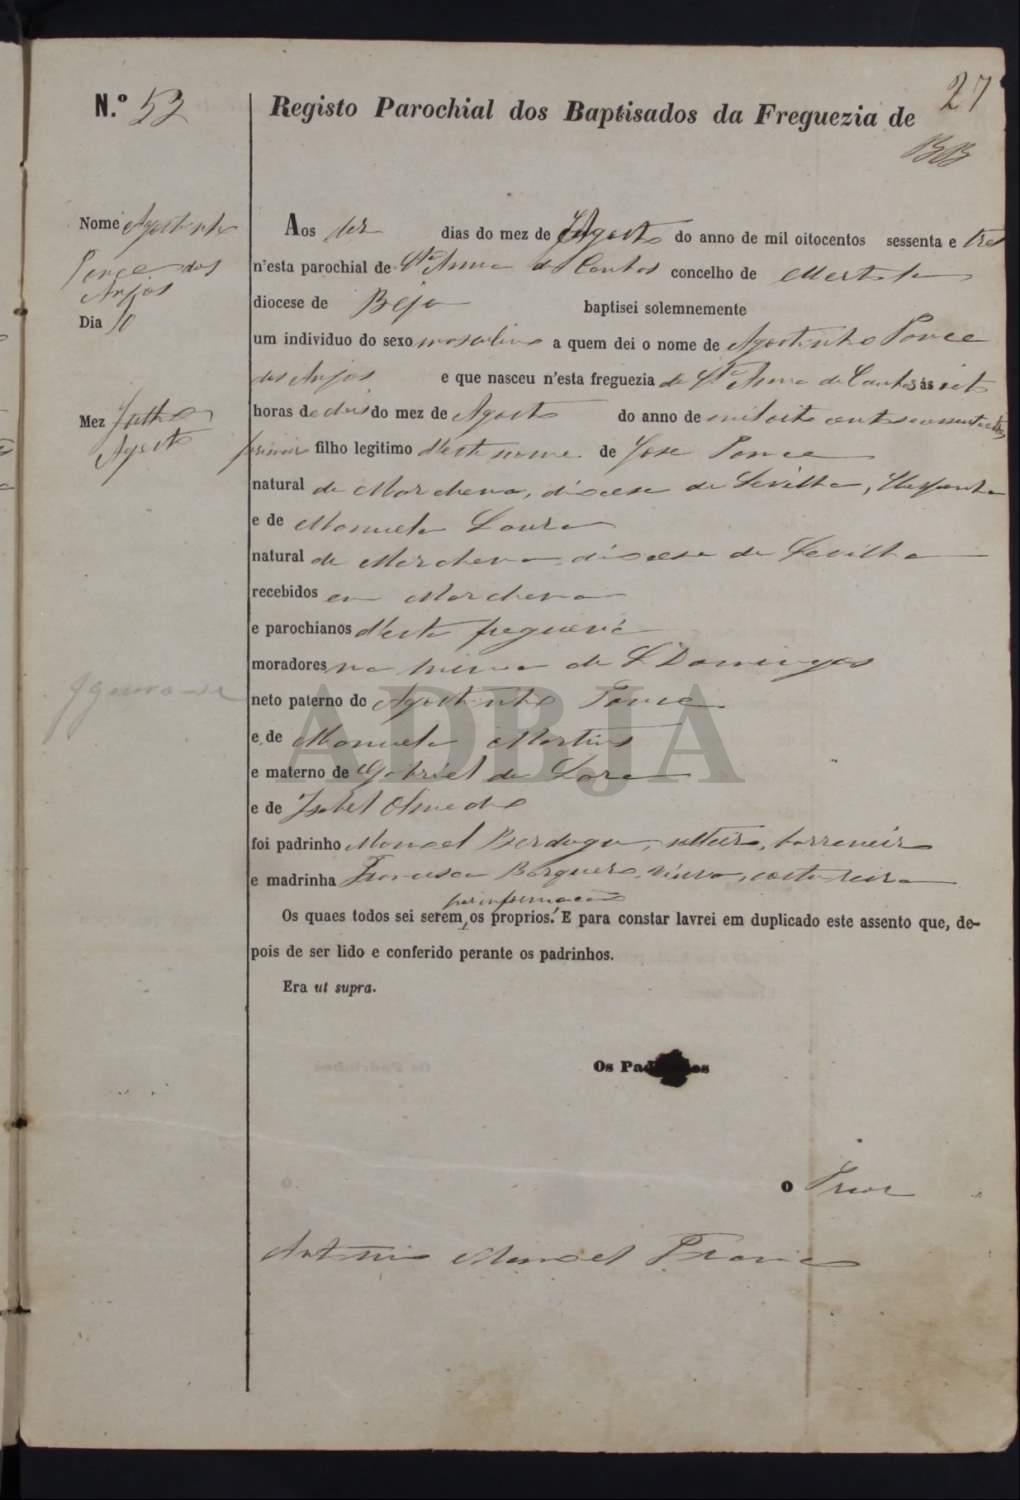 27
N.º 52 Registo Parochial dos Baptisados da Freguezia de
Nome Agostinho
Ponce dos
Anjos
Dia 10
Mez Julho
Agosto
Aos dez dias do mez de Agosto do anno de mil oitocentos sessenta e tres
n'esta parochial de Sta Anna de Cambas concelho de Mertola
diocese de Beja baptisei solemnemente
um individuo do sexo masculino a quem dei o nome de Agostinho Ponce
dos Anjos e que nasceu n'esta freguezia de Sta Anna de Cambas ás sete
horas de dois do mez de Agosto do anno de mil oito centos sessenta e tres
primeiro filho legitimo d'este nome de Jose Ponce
natural de Marchena, diocese de Sevilha, Hespanha
e de Manuela Loura
natural de Marchena diocese de Sevilha
recebidos em Marchena
e parochianos d'esta freguezia
moradores na mina de S Domingos
neto paterno de Agostinho Ponce
e de Manuela Martins
e materno de Gabriel de Lora
e de Isabel Olmedo
foi padrinho Manoel Berdugo, solteiro, barreneiro
e madrinha Francisca Borquero, viuva, costureira
por informação
Os quaes todos sei serem, os proprios. E para constar lavrei em duplicado este assento que, de-
pois de ser lido e conferido perante os padrinhos.
Era ut supra.
Os Padrinhos
O Prior
Antonio Manoel Franco
ADBJA